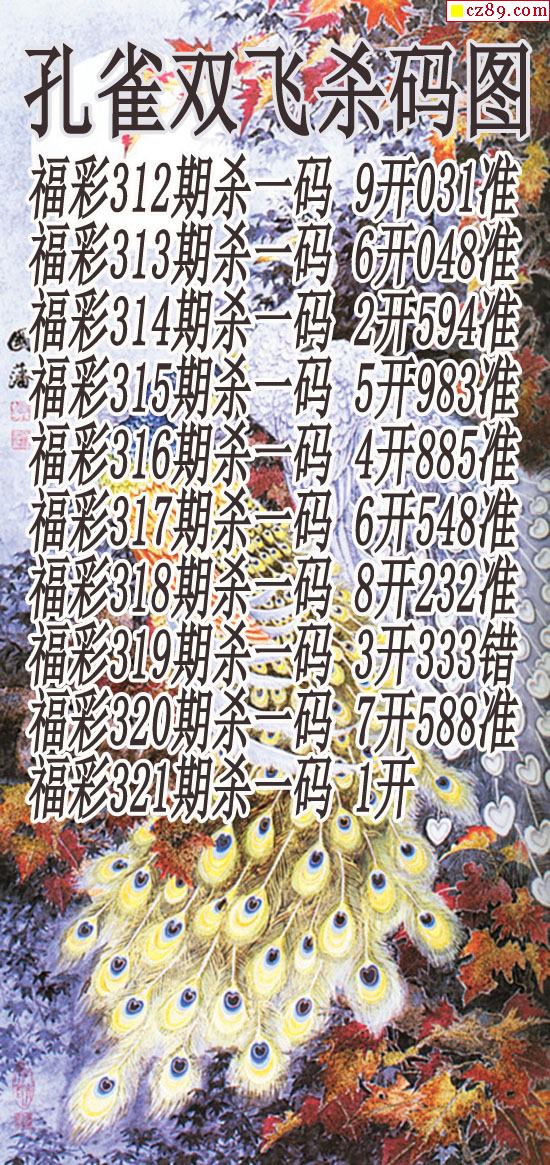 cz89.com
孔雀双飞杀码图
福彩312期杀一码 9开031准
福彩313期杀一码 6开048准
福彩314期杀一码 2开594准
福彩315期杀一码 5开983准
福彩316期杀一码 4开885准
福彩317期杀一码 6开548准
福彩318期杀一码 8开232准
福彩319期杀一码 3开333错
福彩320期杀一码 7开588准
福彩321期杀一码 1开